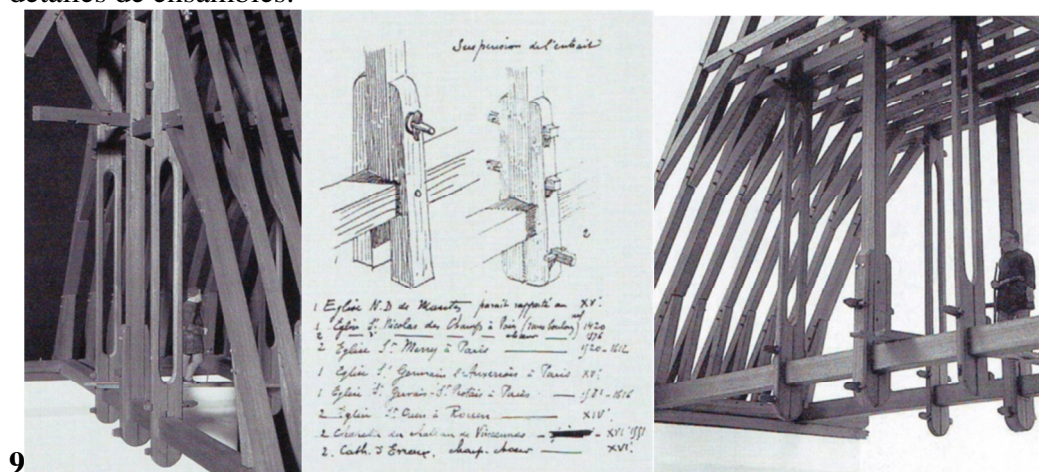 detalles de ensambles.
Suspension de l'entrait
2
1 Eglise N.D de Mantes parait rapporté au XVᵉ.
1 Eglise Sᵗ Nicolas des Champs à Paris (sans boulons) nef 1420
2 — — — — chœur — 1576
2 Eglise Sᵗ Merry à Paris — 1520-1612
1 Eglise Sᵗ Germain l'Auxerrois à Paris XVᵉ
1 Eglise Sᵗ Gervais-Sᵗ Protais à Paris — 1581-1616
2 Eglise Sᵗ Ouen à Rouen — XIVᵉ
2 du chateau de Vincennes — XVIᵉ 1551
2. Cath. d'Evreux, chœur — XVᵉ.
9